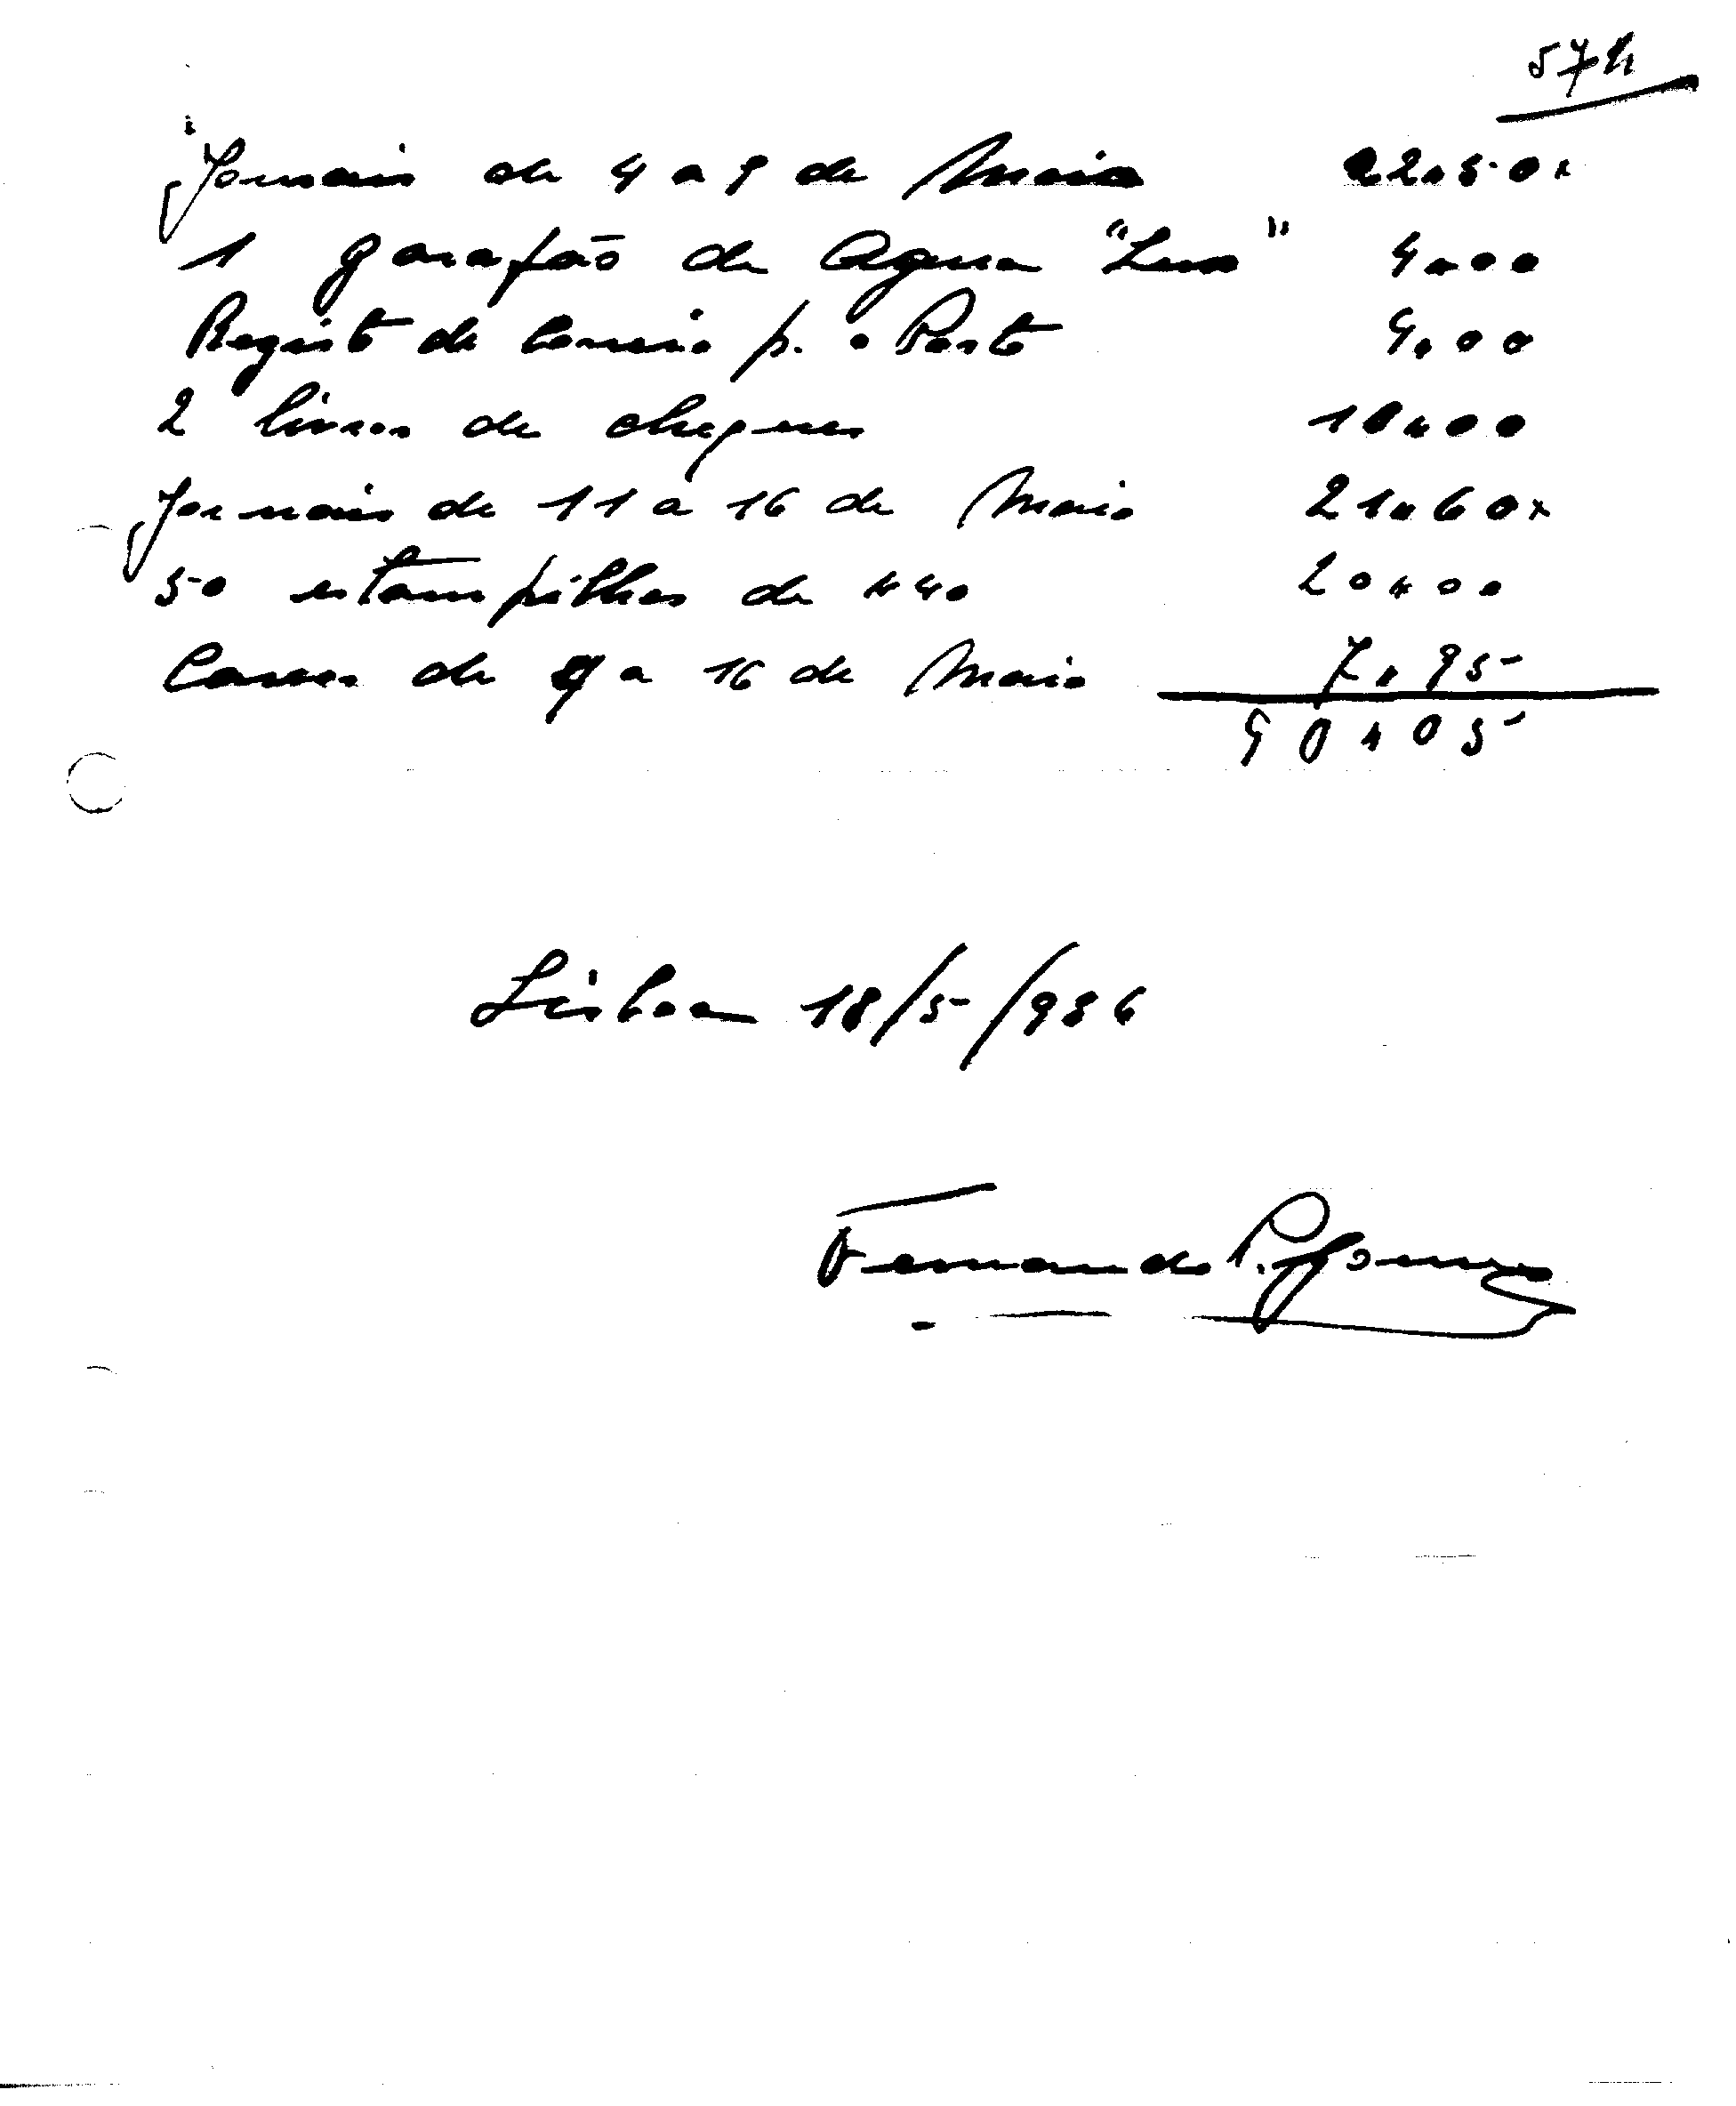 Jornais de 4 a 9 de Maio 22$50
1 garafão de Agua "Luso" 4$00
Registo de Correio p. o Porto 4$00
2 livros de cheques 10$00
Jornais de 11 a 16 de Maio 21$60
50 estampilhas de $40 20$00
Carros de 9 a 16 de Maio 7$95
90$05
Lisboa 18/5/936
Fernando P.